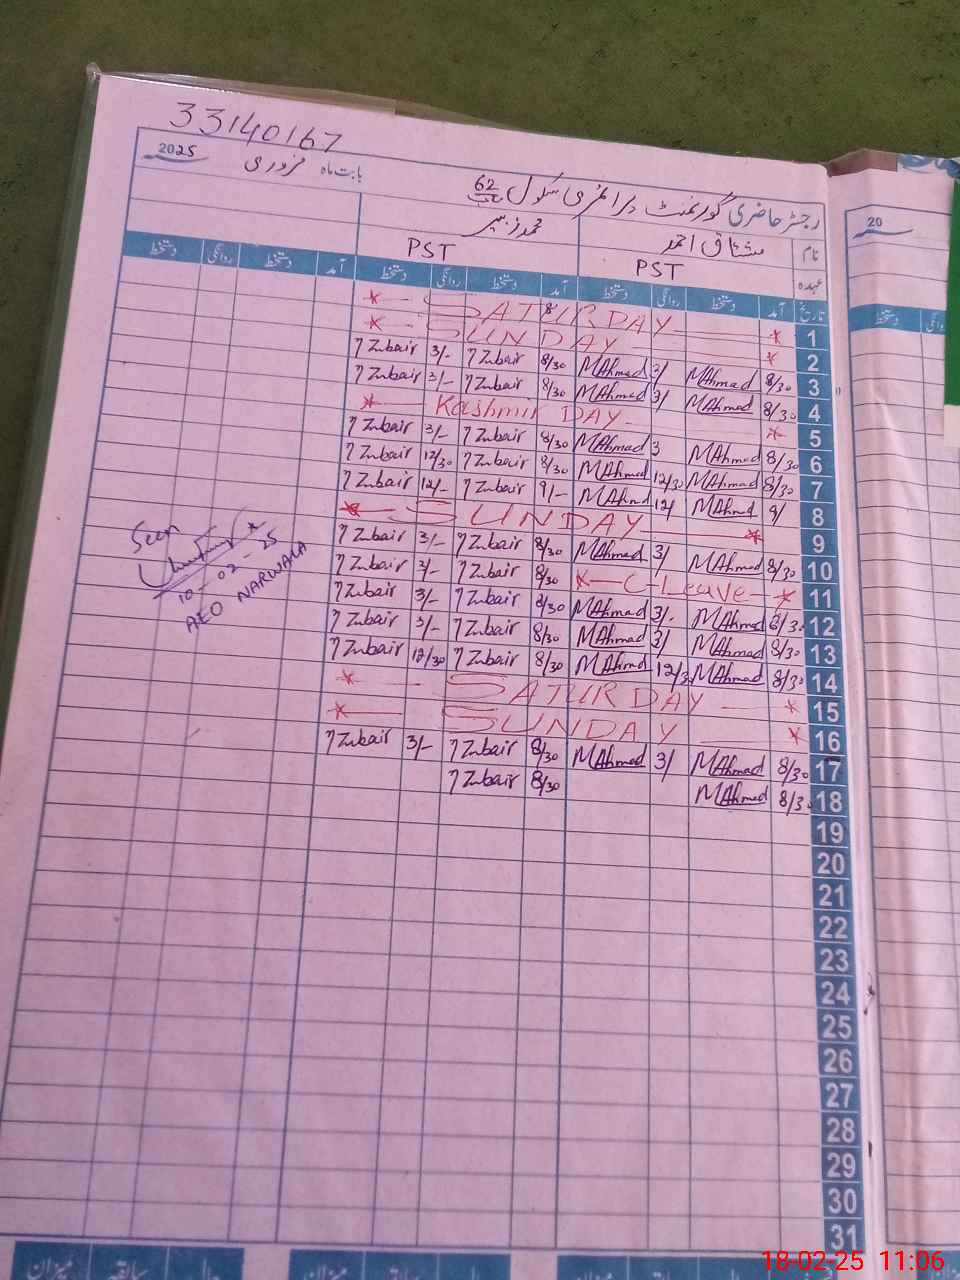 33140167
2025 بابت ماہ فروری
رجسٹر حاضری گورنمنٹ پرائمری سکول 62
نام مشتاق احمد محمد زبیر
عہدہ PST PST
تاریخ آمد دستخط روانگی دستخط آمد دستخط روانگی دستخط آمد دستخط روانگی دستخط
1 * SATURDAY *
2 * SUNDAY *
3 8/30 MAhmad 3/ MAhmad 8/30 Zubair 3/- Zubair
4 8/30 MAhmad 3/ MAhmad 8/30 Zubair 3/- Zubair
5 * Kashmir DAY *
6 8/30 MAhmad 3 MAhmad 8/30 Zubair 3/- Zubair
7 8/30 MAhmad 12/30 MAhmad 8/30 Zubair 12/30 Zubair
8 9/ MAhmad 12/ MAhmad 9/- Zubair 12/- Zubair
9 * SUNDAY *
10 8/30 MAhmad 3/ MAhmad 8/30 Zubair 3/- Zubair
11 * C Leave * 8/30 Zubair 3/- Zubair
12 8/30 MAhmad 3/- MAhmad 8/30 Zubair 3/- Zubair
13 8/30 MAhmad 3/ MAhmad 8/30 Zubair 3/- Zubair
14 8/30 MAhmad 12/30 MAhmad 8/30 Zubair 12/30 Zubair
15 * SATURDAY *
16 * SUNDAY *
17 8/30 MAhmad 3/ MAhmad 8/30 Zubair 3/- Zubair
18 8/30 MAhmad 8/30 Zubair
19
20
21
22
23
24
25
26
27
28
29
30
31
Seen
10-02-25
AEO NARWALA
20
دستخط
میزان سابقہ میزان سابقہ
18-02-25 11:06